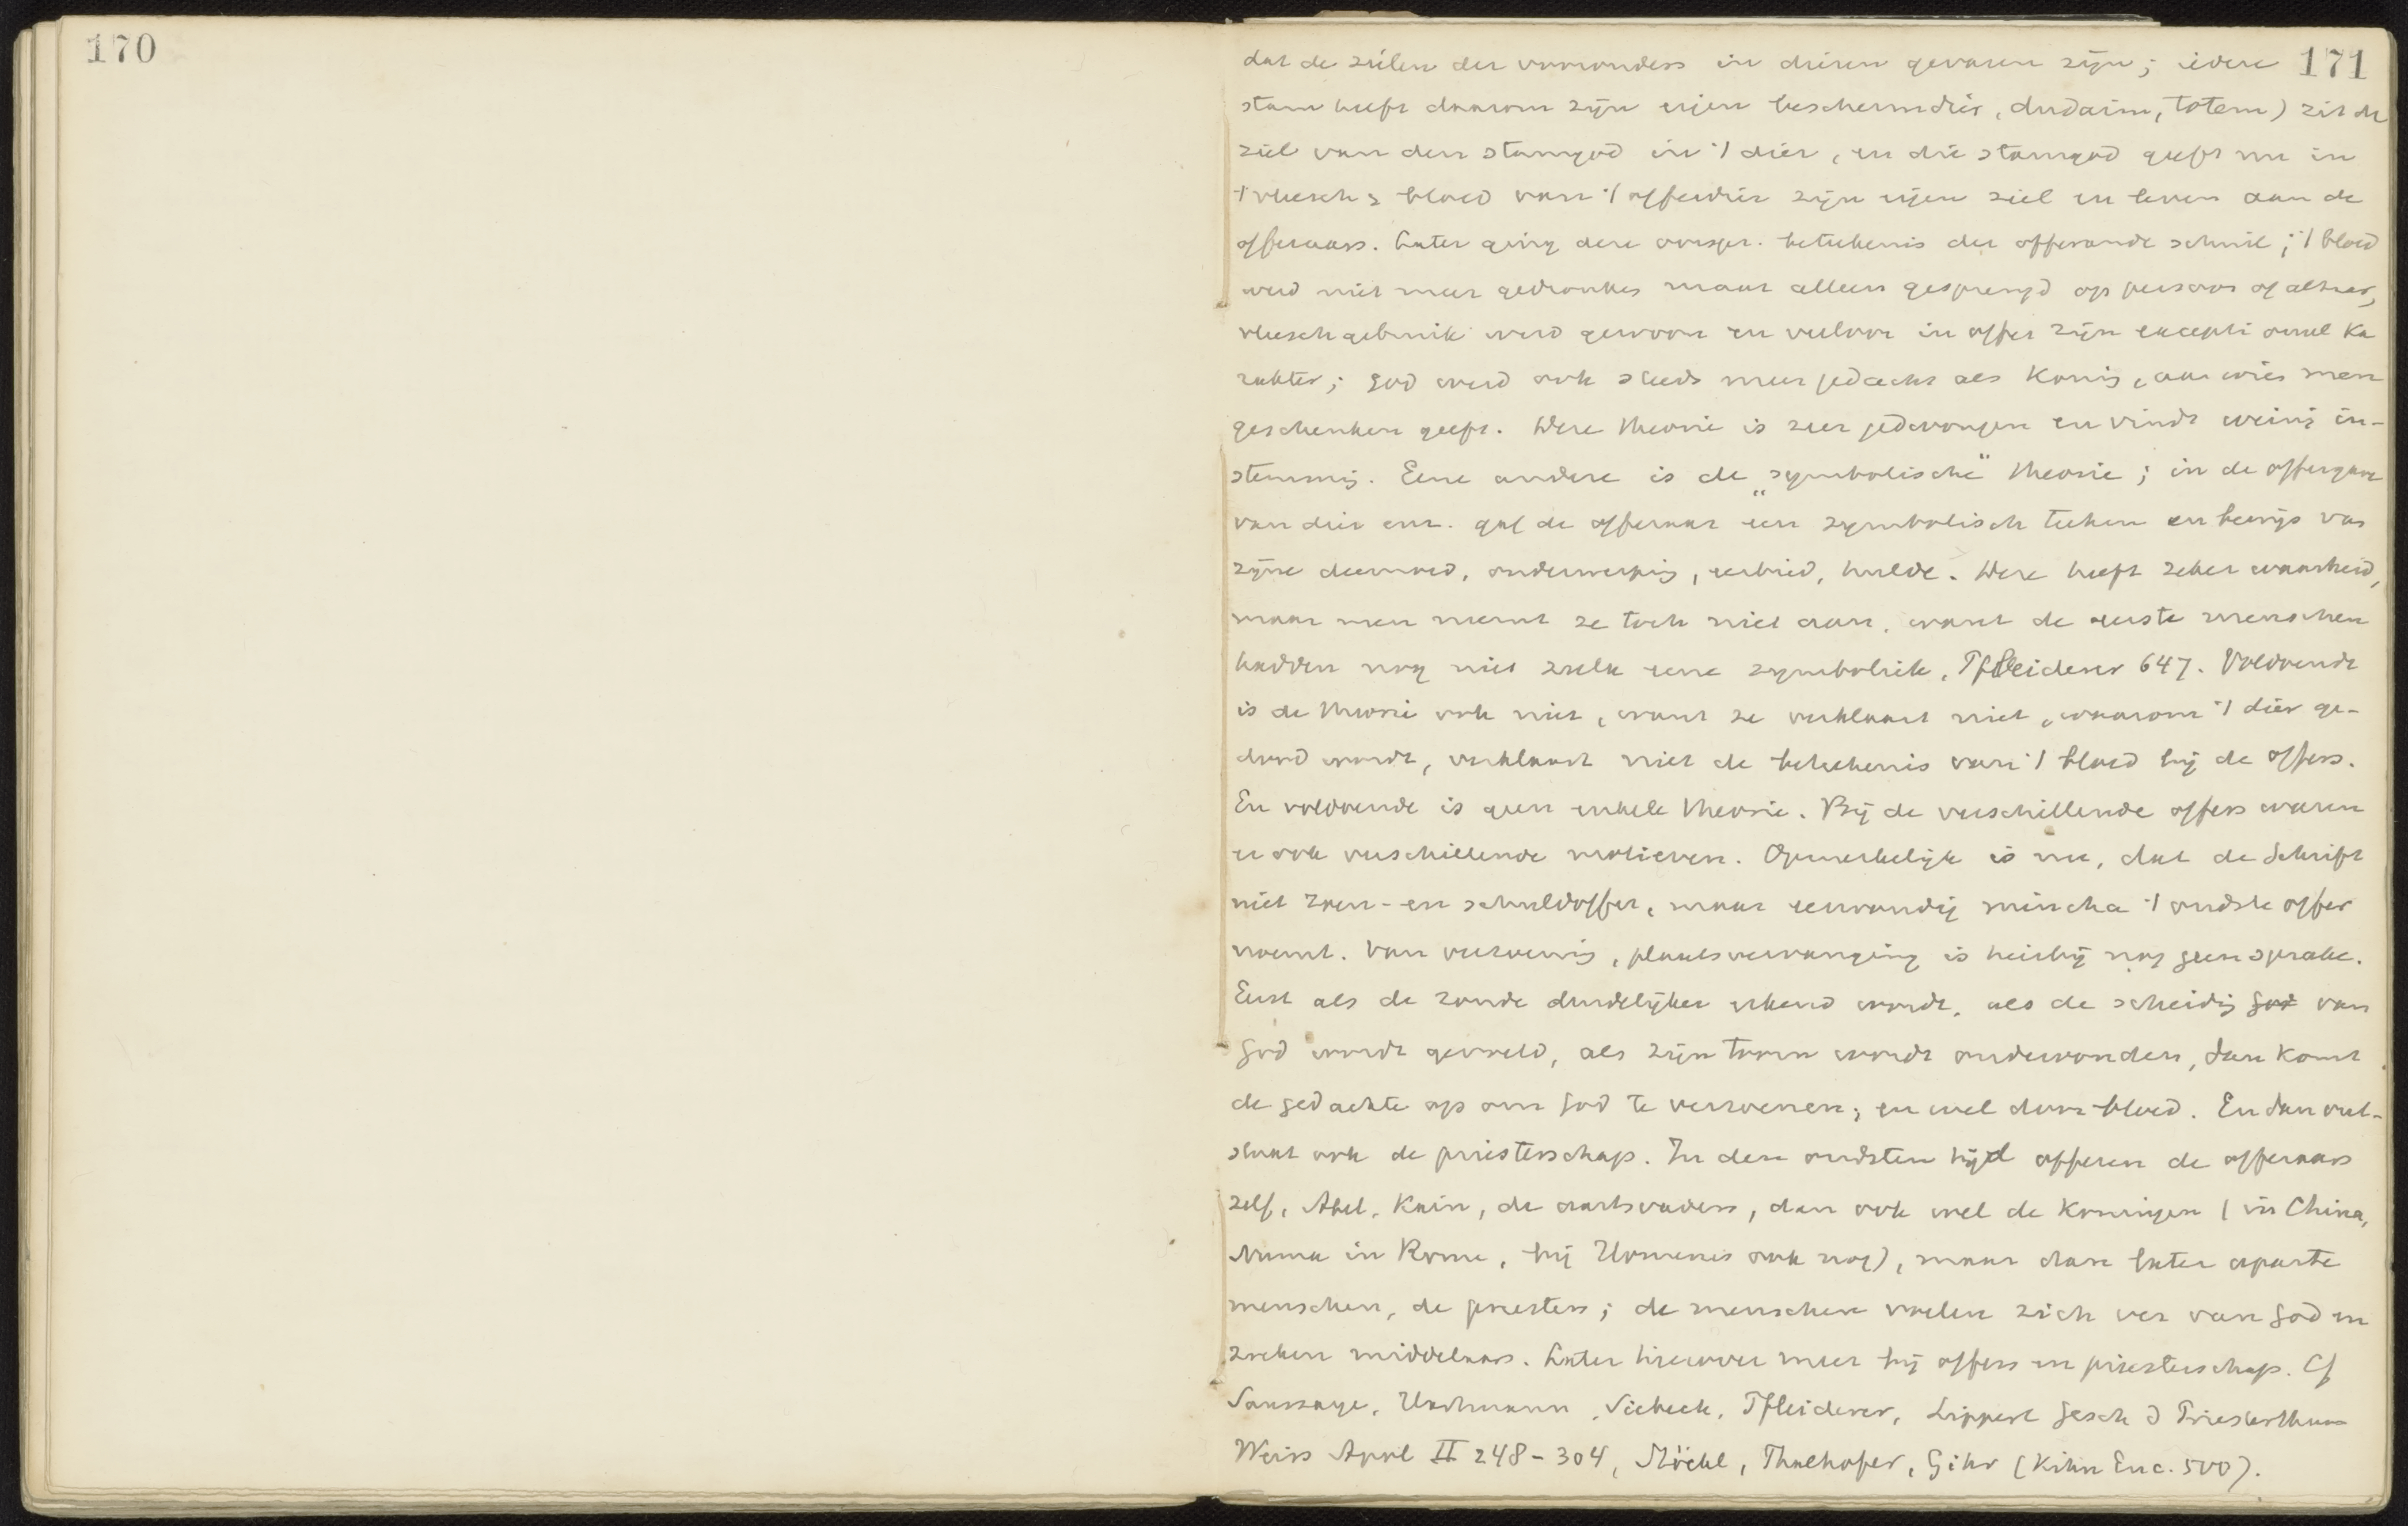 170
171
dat de zielen der voorouders in dieren gevaren zijn; iedere
stam heeft daarom zijn eigen beschermdier, dudaim, totem) zit de
ziel van den stamgod in 't dier, en die stamgod geeft nu in
't vleesch & bloed van 't offerdier zijn eigen ziel en leven aan de
offeraars. Later ging deze oorspr. beteekenis der offerande schuil; 't bloed
werd niet meer gedronken maar alleen gesprengd op persoon of altaar,
vleeschgebruik werd gewoon en verloor in offer zijn exceptioneel ka
rakter; God werd ook steeds meer gedacht als Koning, aan wien men
geschenken geeft. Deze theorie is zeer gedwongen en vindt weinig in-
stemming. Eene andere is de „symbolische" theorie; in de offergave
van dier enz. gaf de offeraar een symbolisch teeken en bewijs van
zijne deemoed, onderwerping, eerbied, hulde. Deze heeft zeker waarheid,
maar men neemt ze toch niet aan, want de eerste menschen
hadden nog niet zulk eene symboliek, Pfleiderer 647. Voldoende
is de theorie ook niet, want ze verklaart niet, waarom 't dier ge-
dood wordt, verklaart niet de beteekenis van 't bloed bij de offers.
En voldoende is geen enkele theorie. Bij de verschillende offers waren
er ook verschillende motieven. Opmerkelijk is nu, dat de Schrift
niet zoen- en schuldoffer, maar eenvoudig mincha 't oudste offer
noemt. Van verzoening, plaatsvervanging is hierbij nog geen sprake.
Eerst als de zonde duidelijker erkend wordt, als de scheiding God van
God wordt gevoeld, als zijn toorn wordt ondervonden, dan komt
de gedachte op om God te verzoenen; en wel door bloed. En dan ont-
staat ook de priesterschap. In den oudsten tijd offeren de offeraars
zelf, Abel, Kain, de aartsvaders, dan ook wel de Koningen (in China,
Numa in Rome, bij Homerus ook nog), maar dan later aparte
menschen, de priesters; de menschen voelen zich ver van God en
zoeken middelaars. Later hierover meer bij offers en priesterschap. Cf
Saussaye, Hardmann, Siebeck, Pfleiderer, Lippert Gesch d Priesterthums
Weiss Apol II 248-304, Stöckl, Thalhofer, Gihr (Kihn Enc. 500).